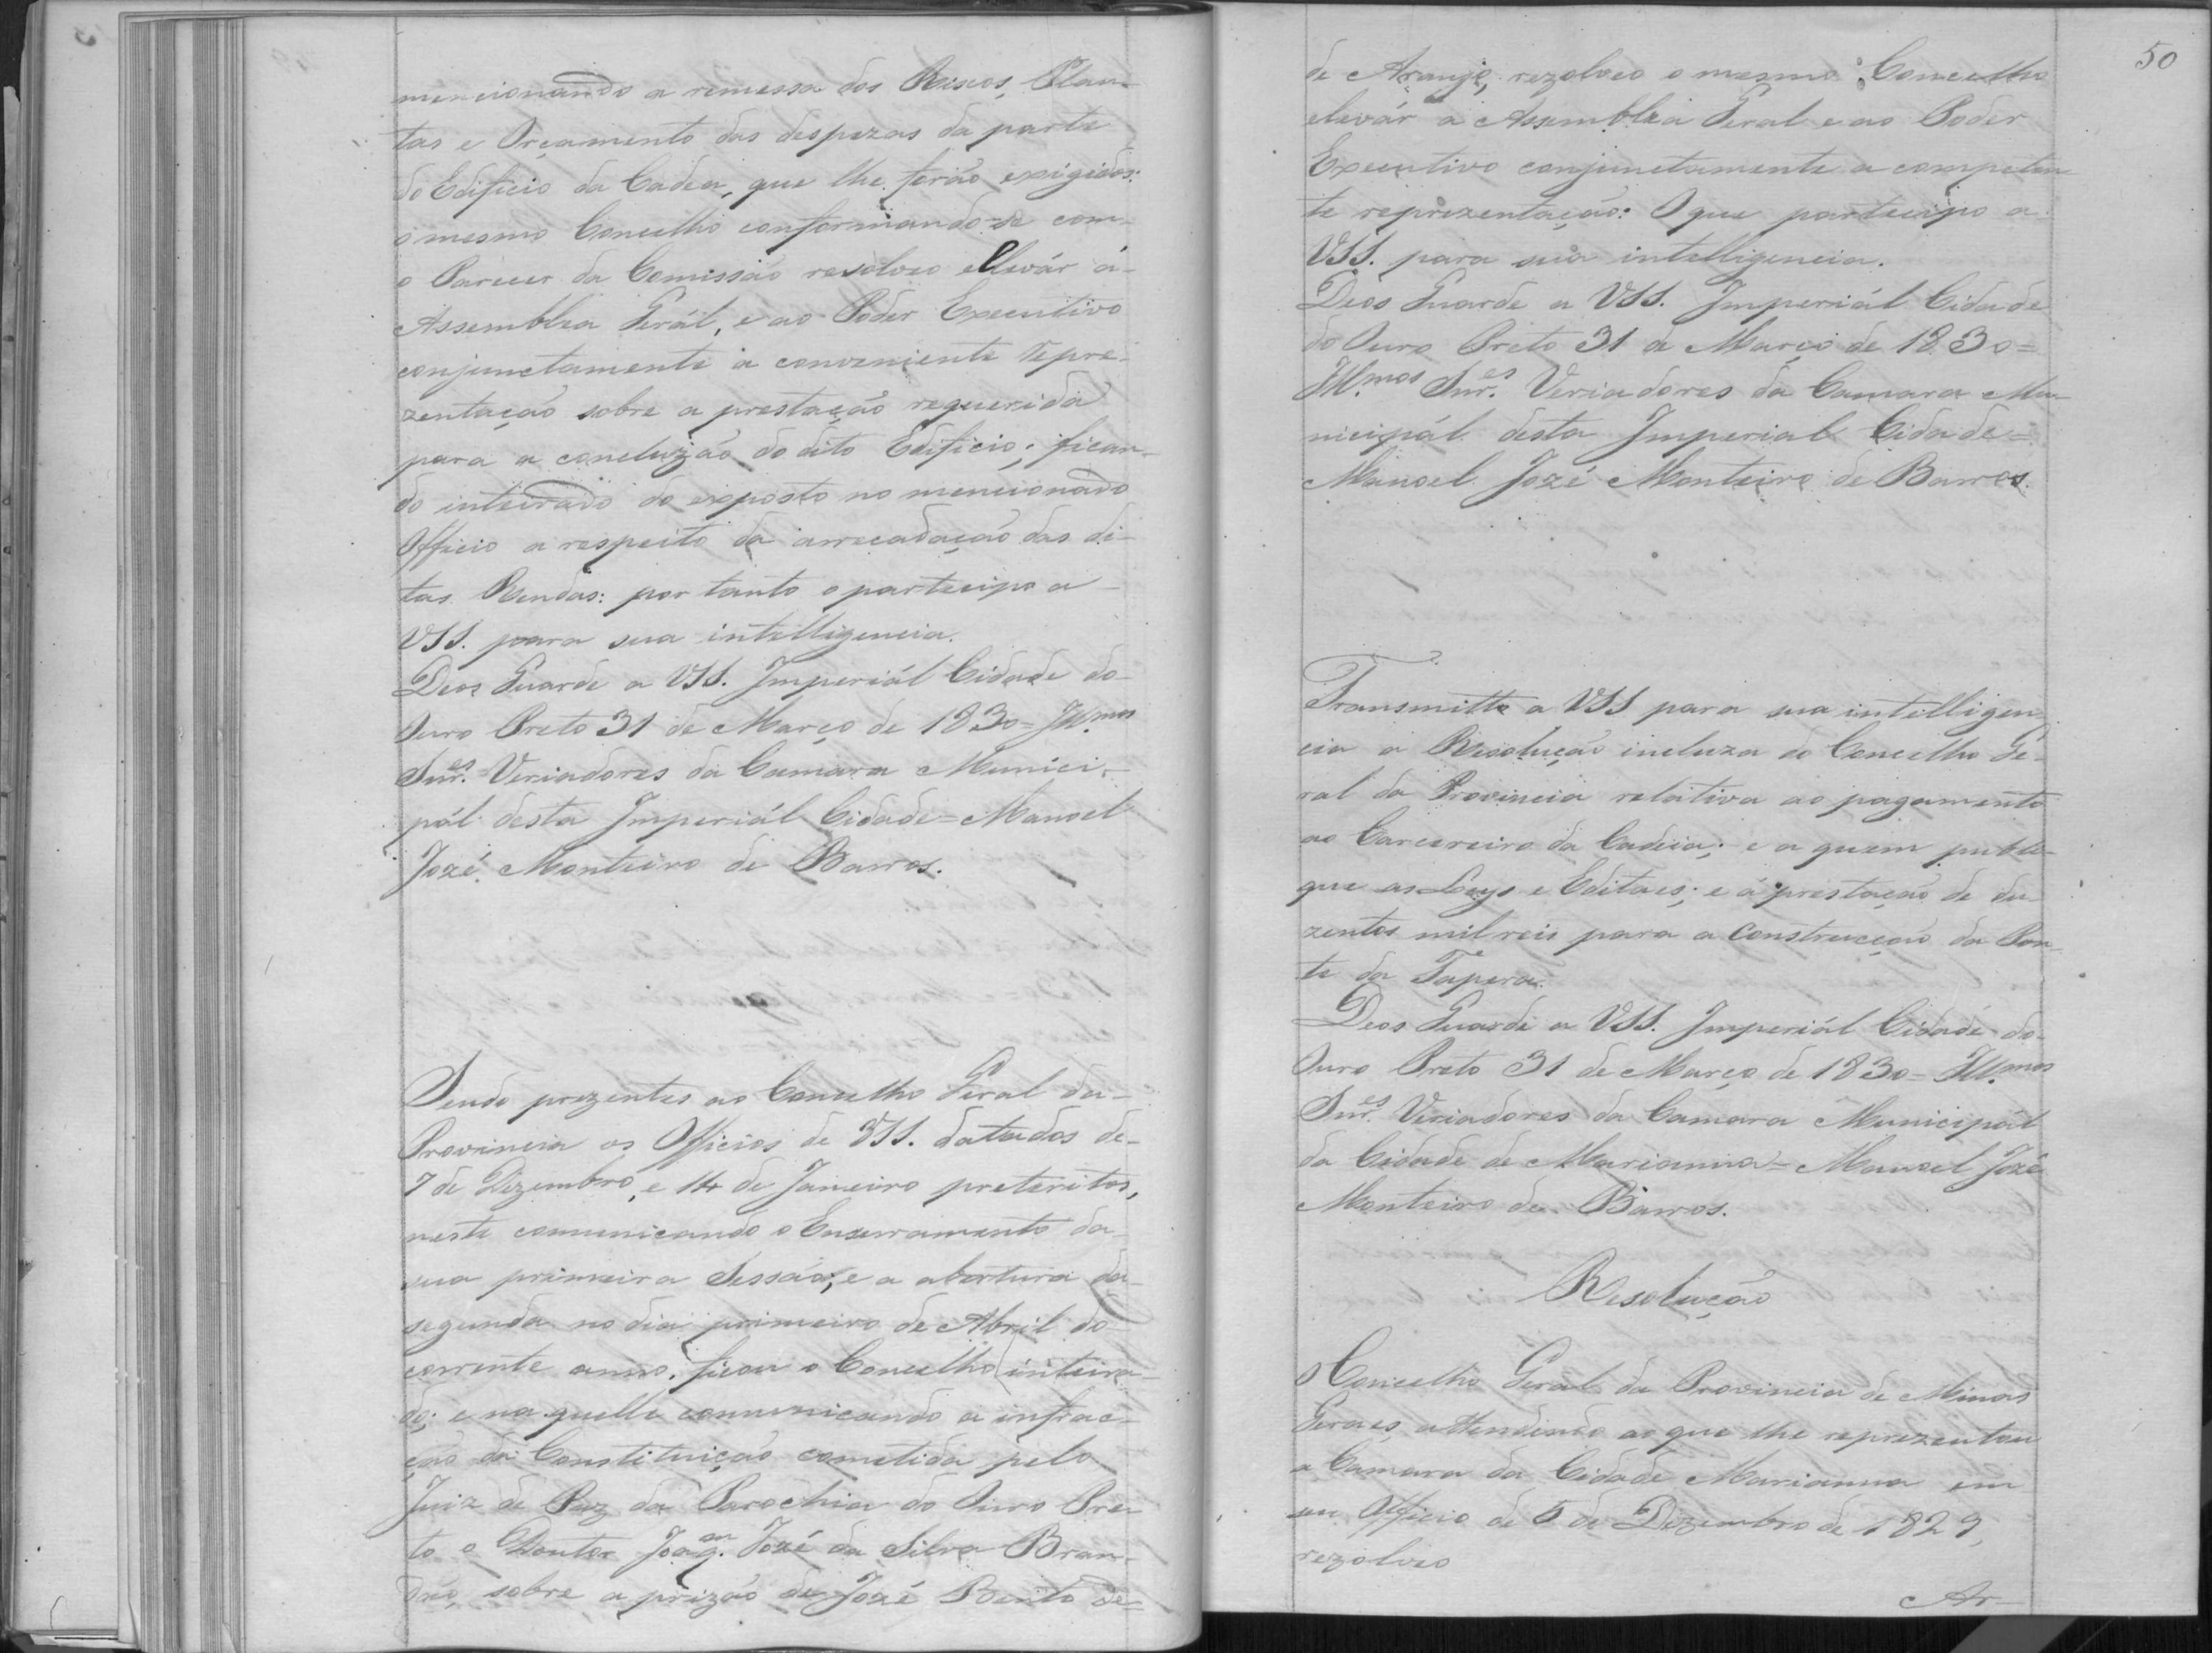 mencionando a remessa dos Riscos, Plan-
tas e Orçamento das despezas da parte
do Edificio da Cadea, que lhe forão exigidos:
o mesmo Concelho conformando-se com-
o Parecer da Comissão resolveo ellevár á-
Assemblea Gerál, e ao Poder Executivo
conjunctamente a conveniente repre-
zentação sobre a prestação requerida
para a concluzão do dito Edificio; fican-
do inteirado do exposto no mencionado
Officio a respeito da arrecadação das di-
tas Rendas: por tanto o partecipo a-
VSS. para sua intelligencia.
Deos Guarde a VSS. Imperiál Cidade do-
Ouro Preto 31 de Março de 1830= Ill.mos
Snr.es Veriadores da Camara Munici-
pál desta Imperiál Cidade= Manoel
Jozé Monteiro de Barros.
Sendo prezentes ao Concelho Geral da-
Provincia os Officios de VSS. datados de-
7 de Dizembro, e 14 de Janeiro preteritos,
neste comunicando o Enserramento da-
sua primeira Sessão; e a abertura da-
segunda no dia primeiro de Abril do-
corrente anno, ficou o Concelho inteira-
do; e na quelle comunicando a infrac-
ção da Constituição cometida pelo
Juiz de Paz da Parochia do Ouro Pre-
to o Doutor Joaq.m Jozé da Silva Bran-
dão, sobre a prizão de Jozé Bento de-
50
de Araujo, rezolveo o mesmo Concelho
elevár a Assemblea Geral e ao Poder
Executivo conjunctamente a competen-
te reprezentação: O que partecipo a
VSS. para sua intelligencia.
Deos Guarde a VSS. Imperiál Cidade
do Ouro Preto 31 de Março de 1830=
Ill.mos Snr.es Veriadores da Camara Mu-
nicipál desta Imperial Cidade=
Manoel Jozé Monteiro de Barros.
Transmitto a VSS para sua intelligen-
cia a Rezolução incluza do Concelho Ge-
ral da Provincia relativa ao pagamento
ao Carcereiro da Cadeia; e a quem publi-
que as Leys e Editaes; e á prestação de du-
zentos mil reis para a Construcção da Pon-
te da Tapera.
Deos Guarde a VSS. Imperiál Cidade do-
Ouro Preto 31 de Março de 1830= Ill.mos
Snr.es Veriadores da Camara Municipál
da Cidade de Marianna= Manoel Jozé
Monteiro de Barros.
Resolução
O Concelho Geral da Provincia de Minas
Geraes, attendendo ao que lhe reprezentou
a Camara da Cidade Marianna em
seu Officio de 5 de Dizembro de 1829,
rezolveo
Ar-